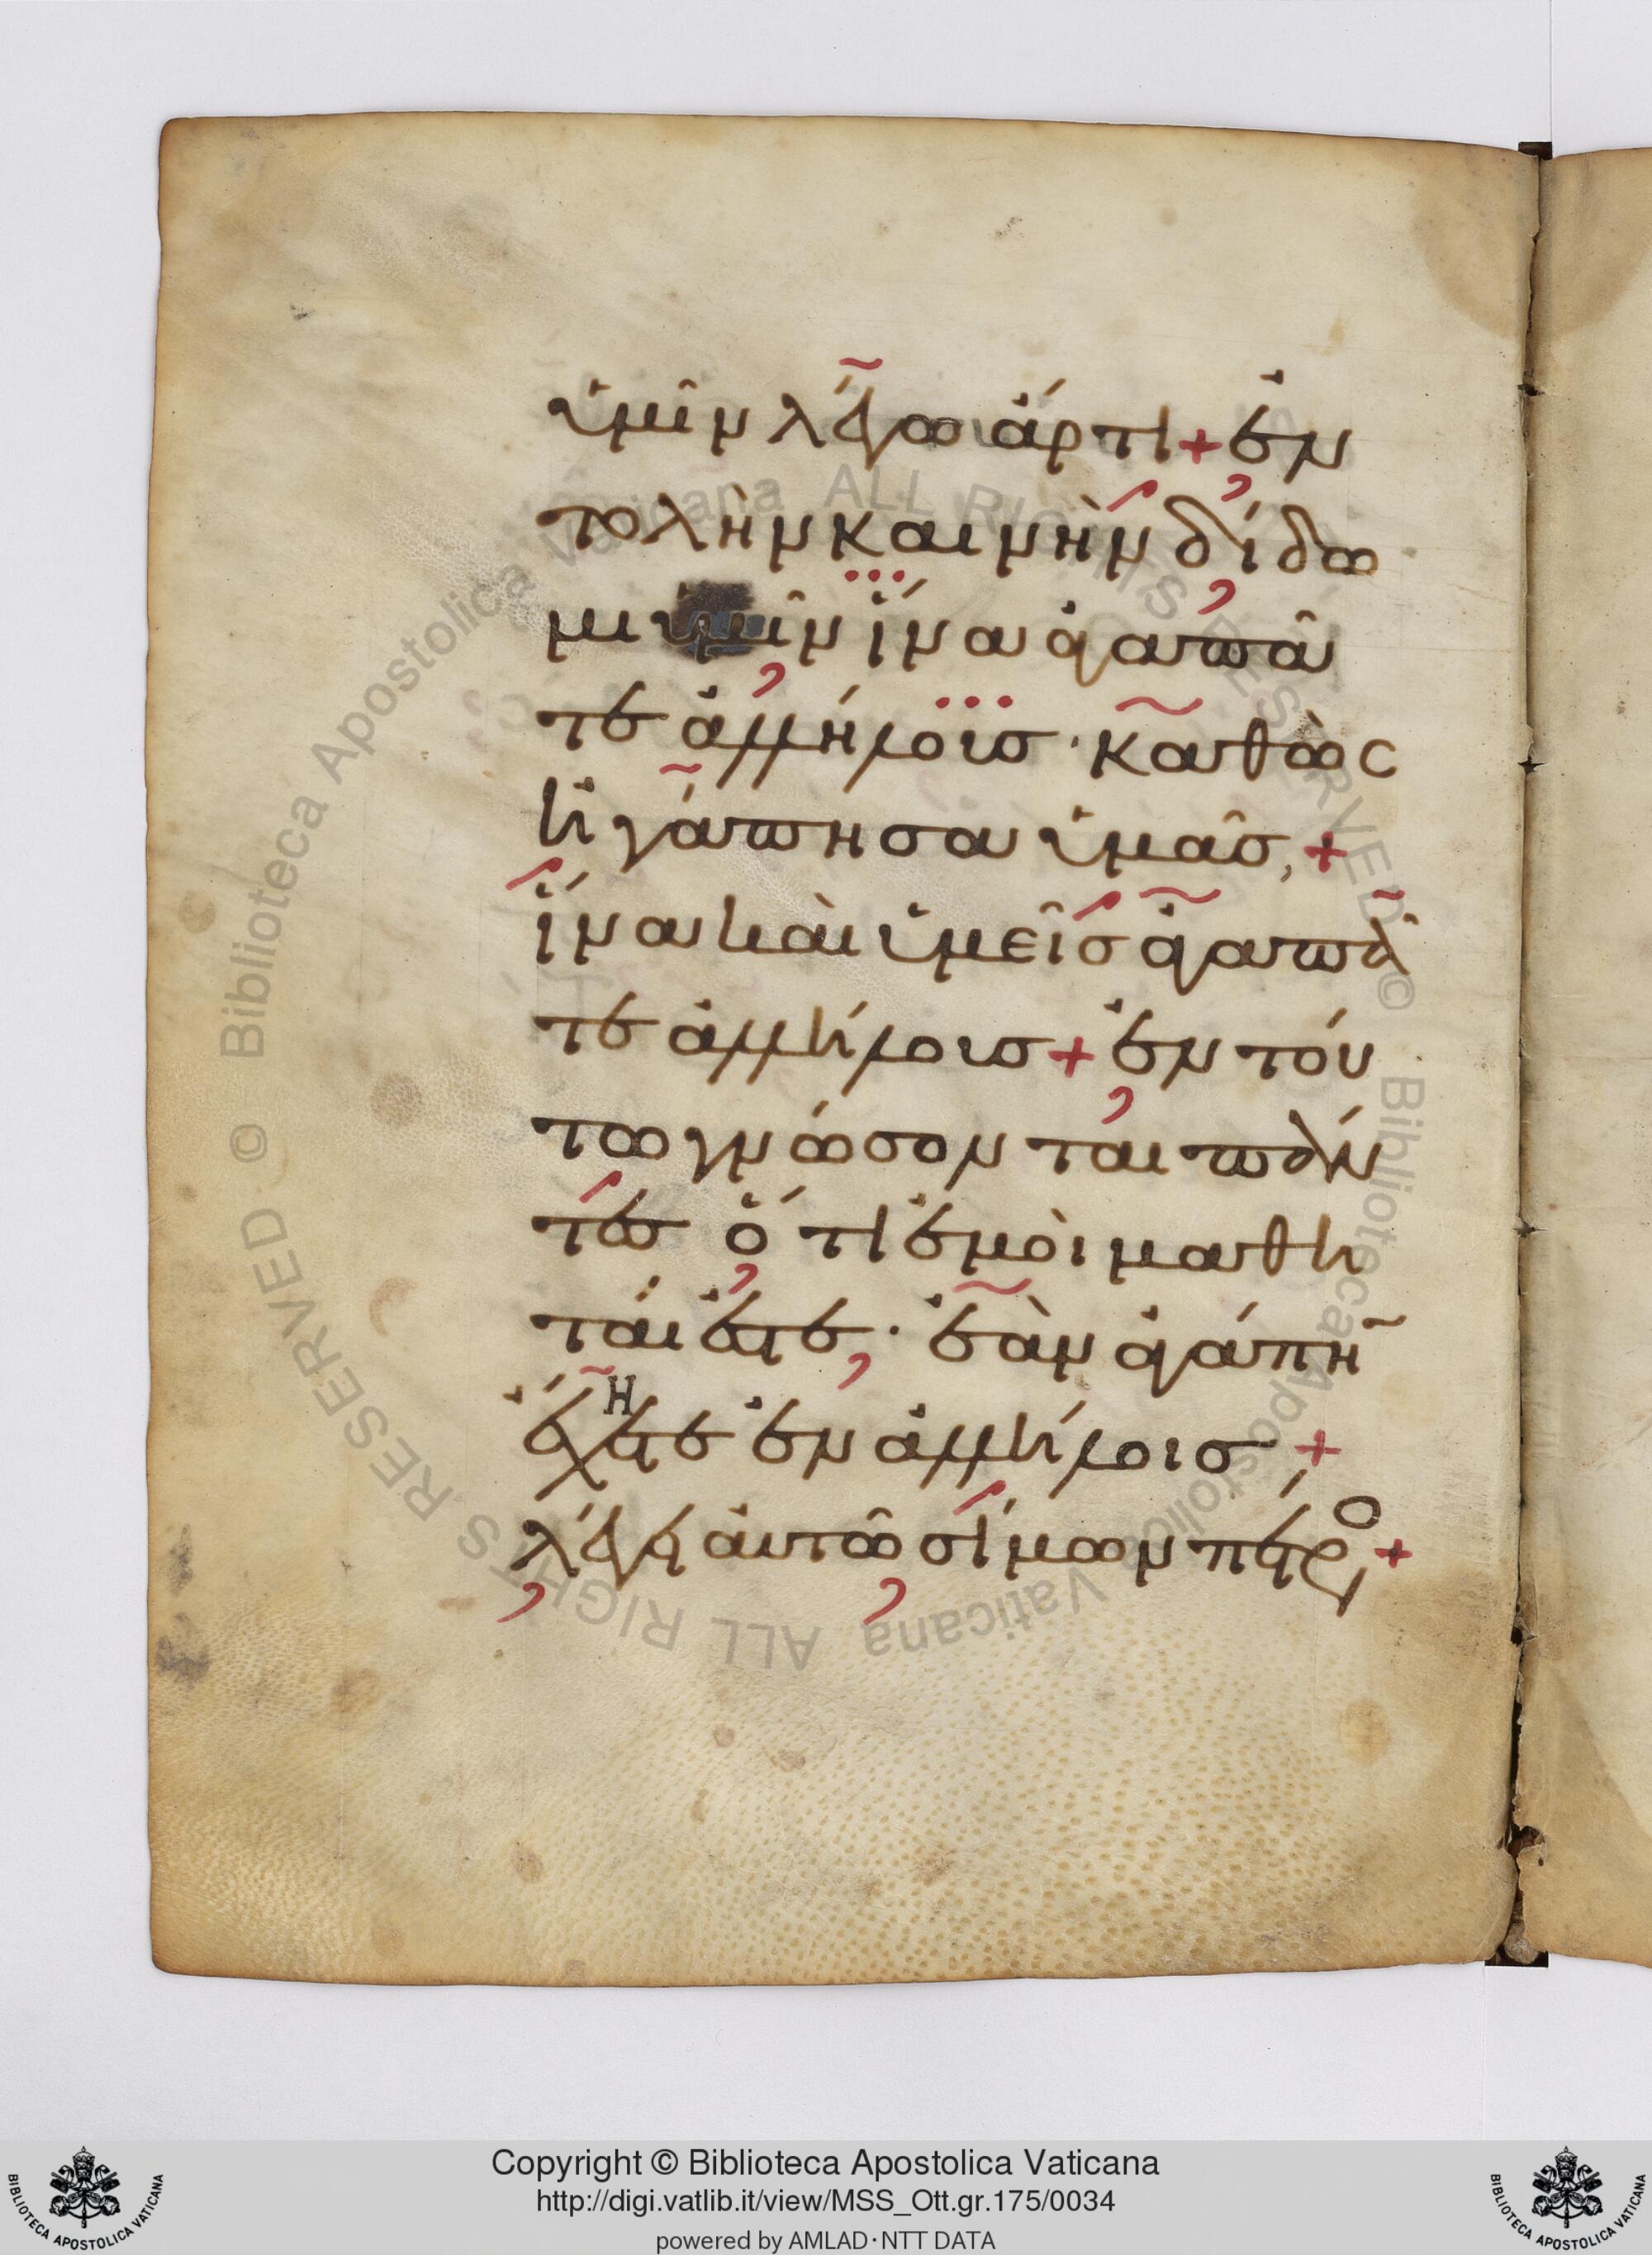 ὑμῖν λέγω ἄρτι + ἐν
τολὴν καινὴν δίδω
μι ὑμῖν ἵνα ἀγαπᾶ
τε ἀλλήλοις · καθὼς
ἠγάπησα ὑμᾶς, +
ἵνα καὶ ὑμεῖς ἀγαπᾶ
τε ἀλλήλοις + ἐν τού
τω γνώσονται πάν
τες ὅτι ἐμοὶ μαθη
ταί ἐστε, · ἐὰν ἀγάπη
ἔχητε ἐν ἀλλήλοις, +
λέγει αὐτῶ σίμων πέτρο +
Biblioteca Apostolica Vaticana ALL RIGHTS RESERVED © Biblioteca Apostolica Vaticana ALL RIGHTS RESERVED ©
Copyright © Biblioteca Apostolica Vaticana
http://digi.vatlib.it/view/MSS_Ott.gr.175/0034
powered by AMLAD·NTT DATA
BIBLIOTECA APOSTOLICA VATICANA
BIBLIOTECA APOSTOLICA VATICANA